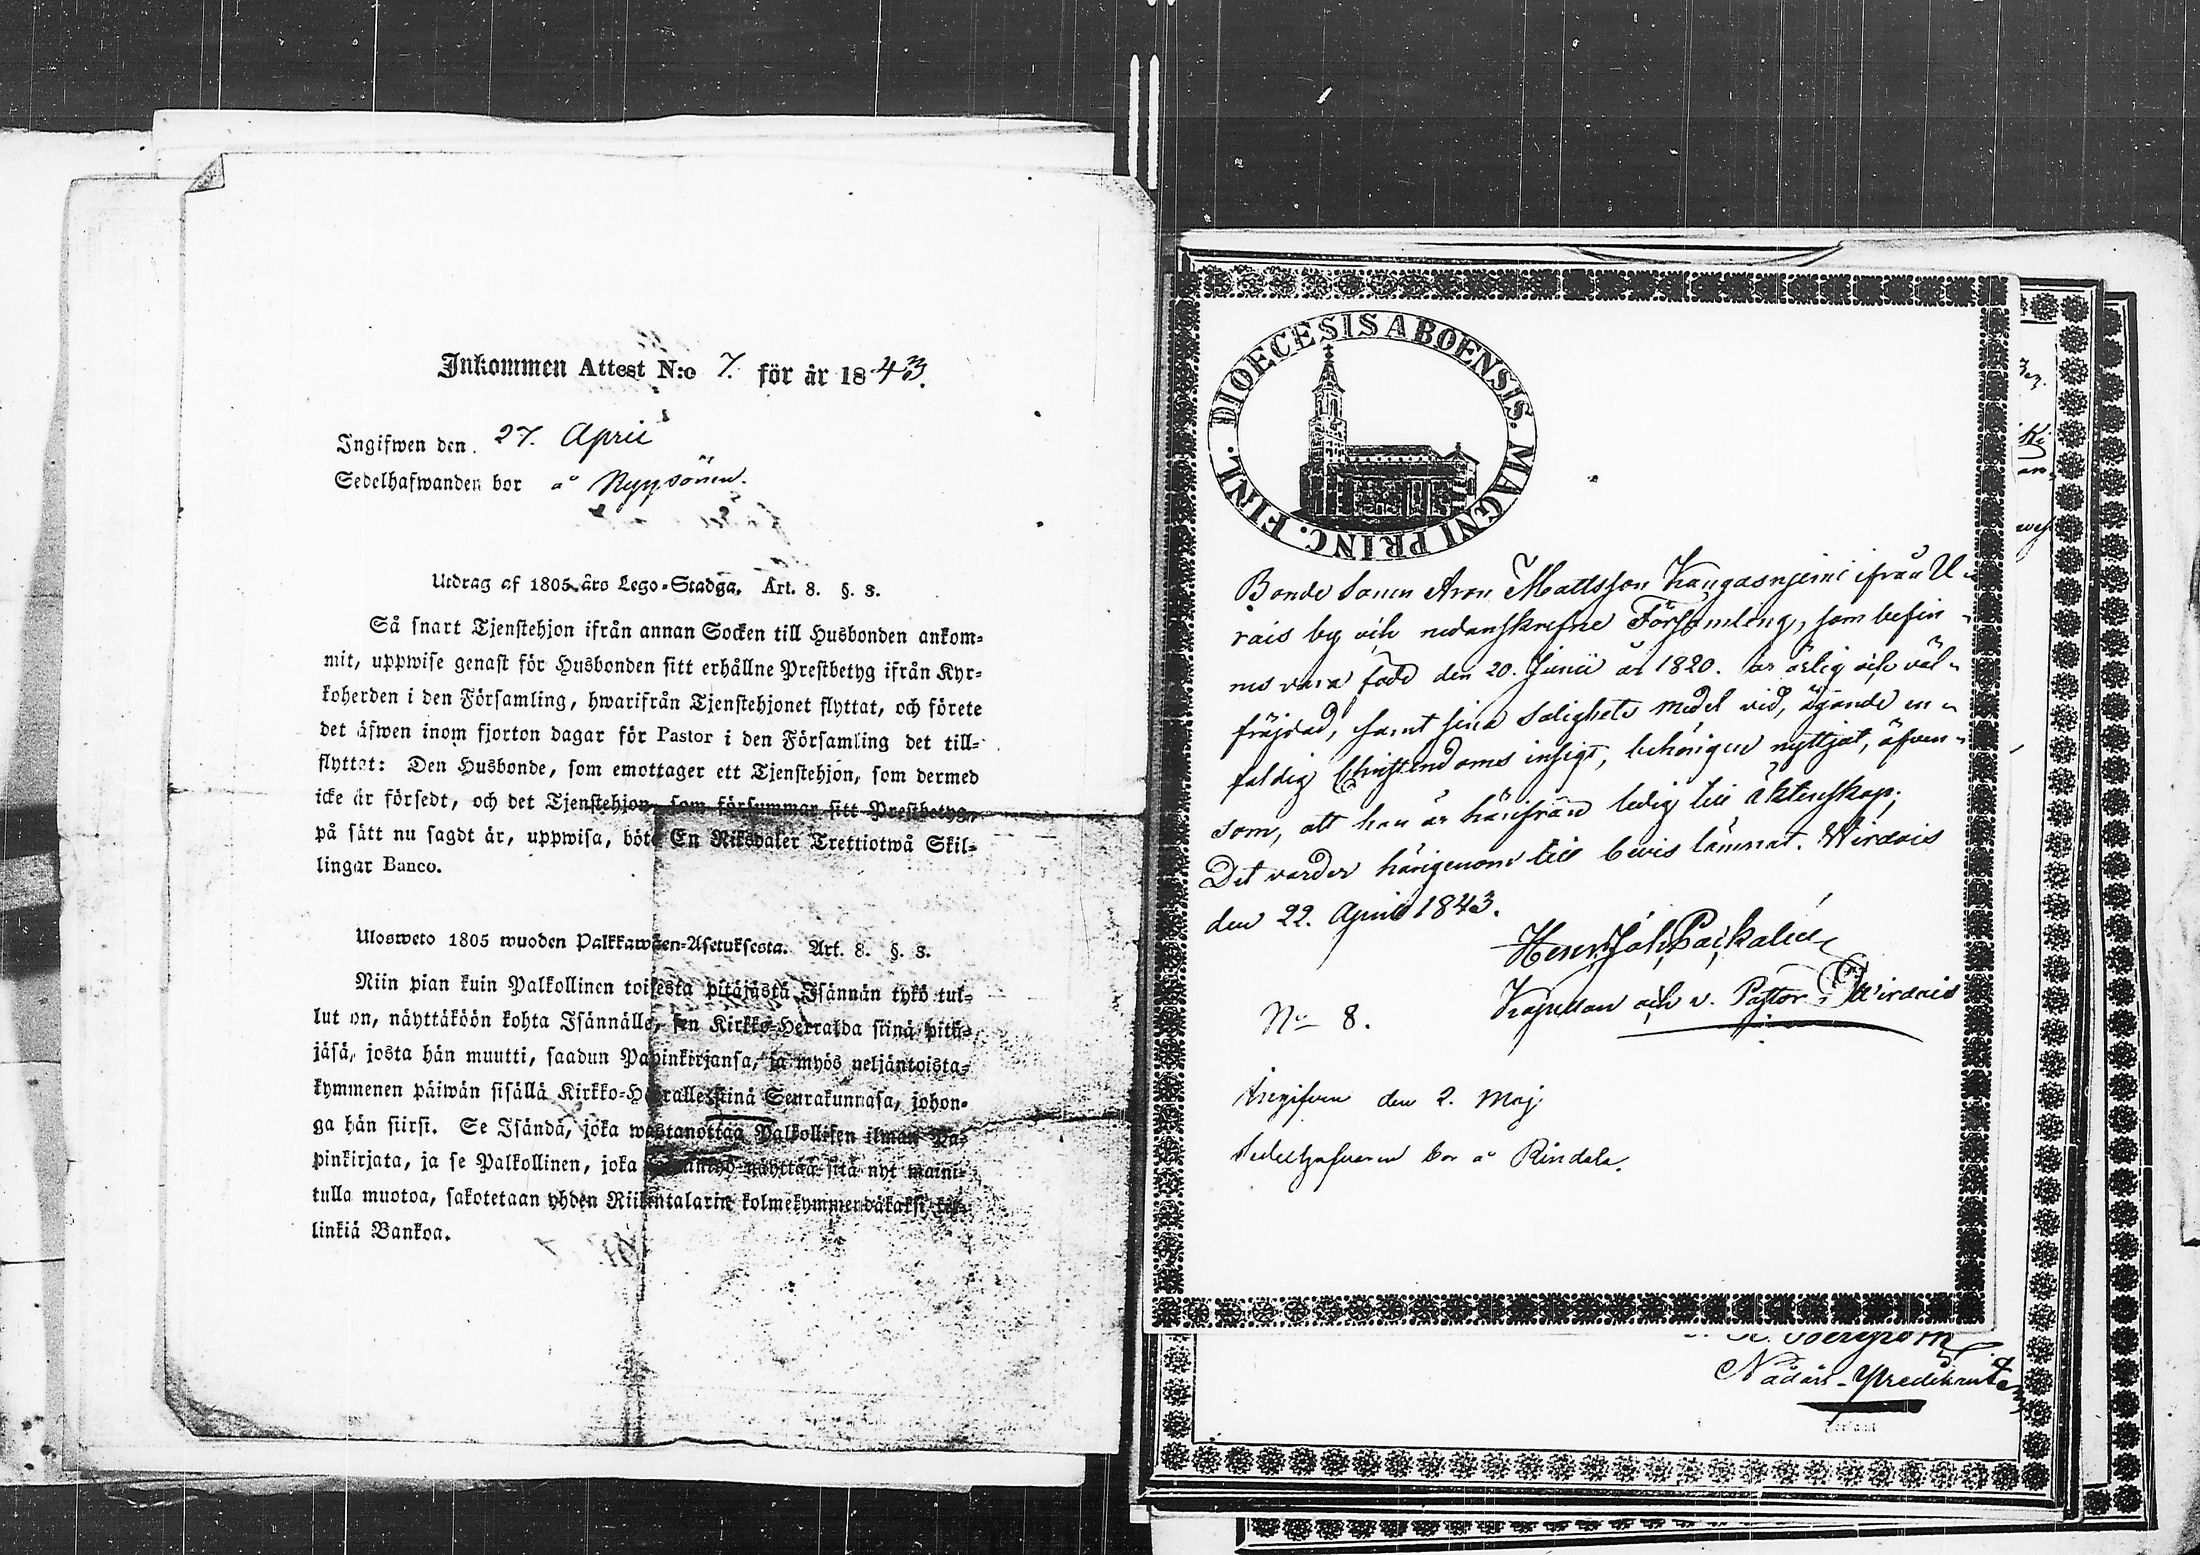 Inkommen Attest N:o 7. för år 1843.
Ingifwen den 27. April
Sedelhafwanden bor å Nyysönen.
Utdrag af 1805 års Lego-Stadga. Art. 8. §. 3.
Så snart Tjenstehjon ifrån annan Socken till Husbonden ankom-
mit, uppwise genast för Husbonden sitt erhållne Prestbetyg ifrån Kyr-
koherden i den Församling, hwarifrån Tjenstehjonet flyttat, och förete
det äfwen inom fjorton dagar för Pastor i den Församling det till-
flyttat: Den Husbonde, som emottager ett Tjenstehjon, som dermed
icke är försedt, och det Tjenstehjon, som försummar sitt Prestbetyg,
på sätt nu sagdt är, uppwisa, böte En Riksdaler Trettiotwå Skil-
lingar Banco.
Ulosweto 1805 wuoden Palkkawäen-Asetuksesta. Art. 8. §. 3.
Niin pian kuin Palkollinen toisesta pitäjästä Isännän tykö tul-
lut on, näyttäköön kohta Isännälle, sen Kirkko-Herralda siinä pitä-
jäsä, josta hän muutti, saadun Papinkirjansa, ja myös neljäntoista-
kymmenen päiwän sisällä Kirkko-Herralle siinä Seurakunnasa, johon-
ga hän siirsi. Se Isändä, joka wastanottaa Palkollisen ilman Pa-
pinkirjata, ja se Palkollinen, joka näyttää sitä nyt maini-
tulla muotoa, sakotetaan yhden Riikintalarin kolmekymmendäkaksi kil-
linkiä Bankoa.
DIOECESIS ABOENSIS. MAGNI PRINC. FINL.
Bonde Sonen Aron Mattsson Kangasnjemi ifrån U-
rais by och nedanskrefne Församling, som befin-
nes vara född den 20. Junii år 1820. är ärlig och väl-
fräjdad, samt sina Salighets medel vid, ägande en-
faldig Christendoms insigt, behörigen nyttjat, äfven-
som, att han är härifrån ledig till äktenskap;
Det varder härigenom till bevis lämnat. Wirdois
den 22. April 1843.
Henr. Joh. Paekalén
Kapellan och v. Pastor i Wirdois
No 8.
Ingifven den 2. Maj.
Sedelhafvaren bor å Rindala.
Nådårs-Predikant